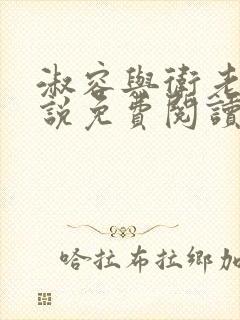 淑容與衛老
説免費閱讀
哈拉布拉鄉加